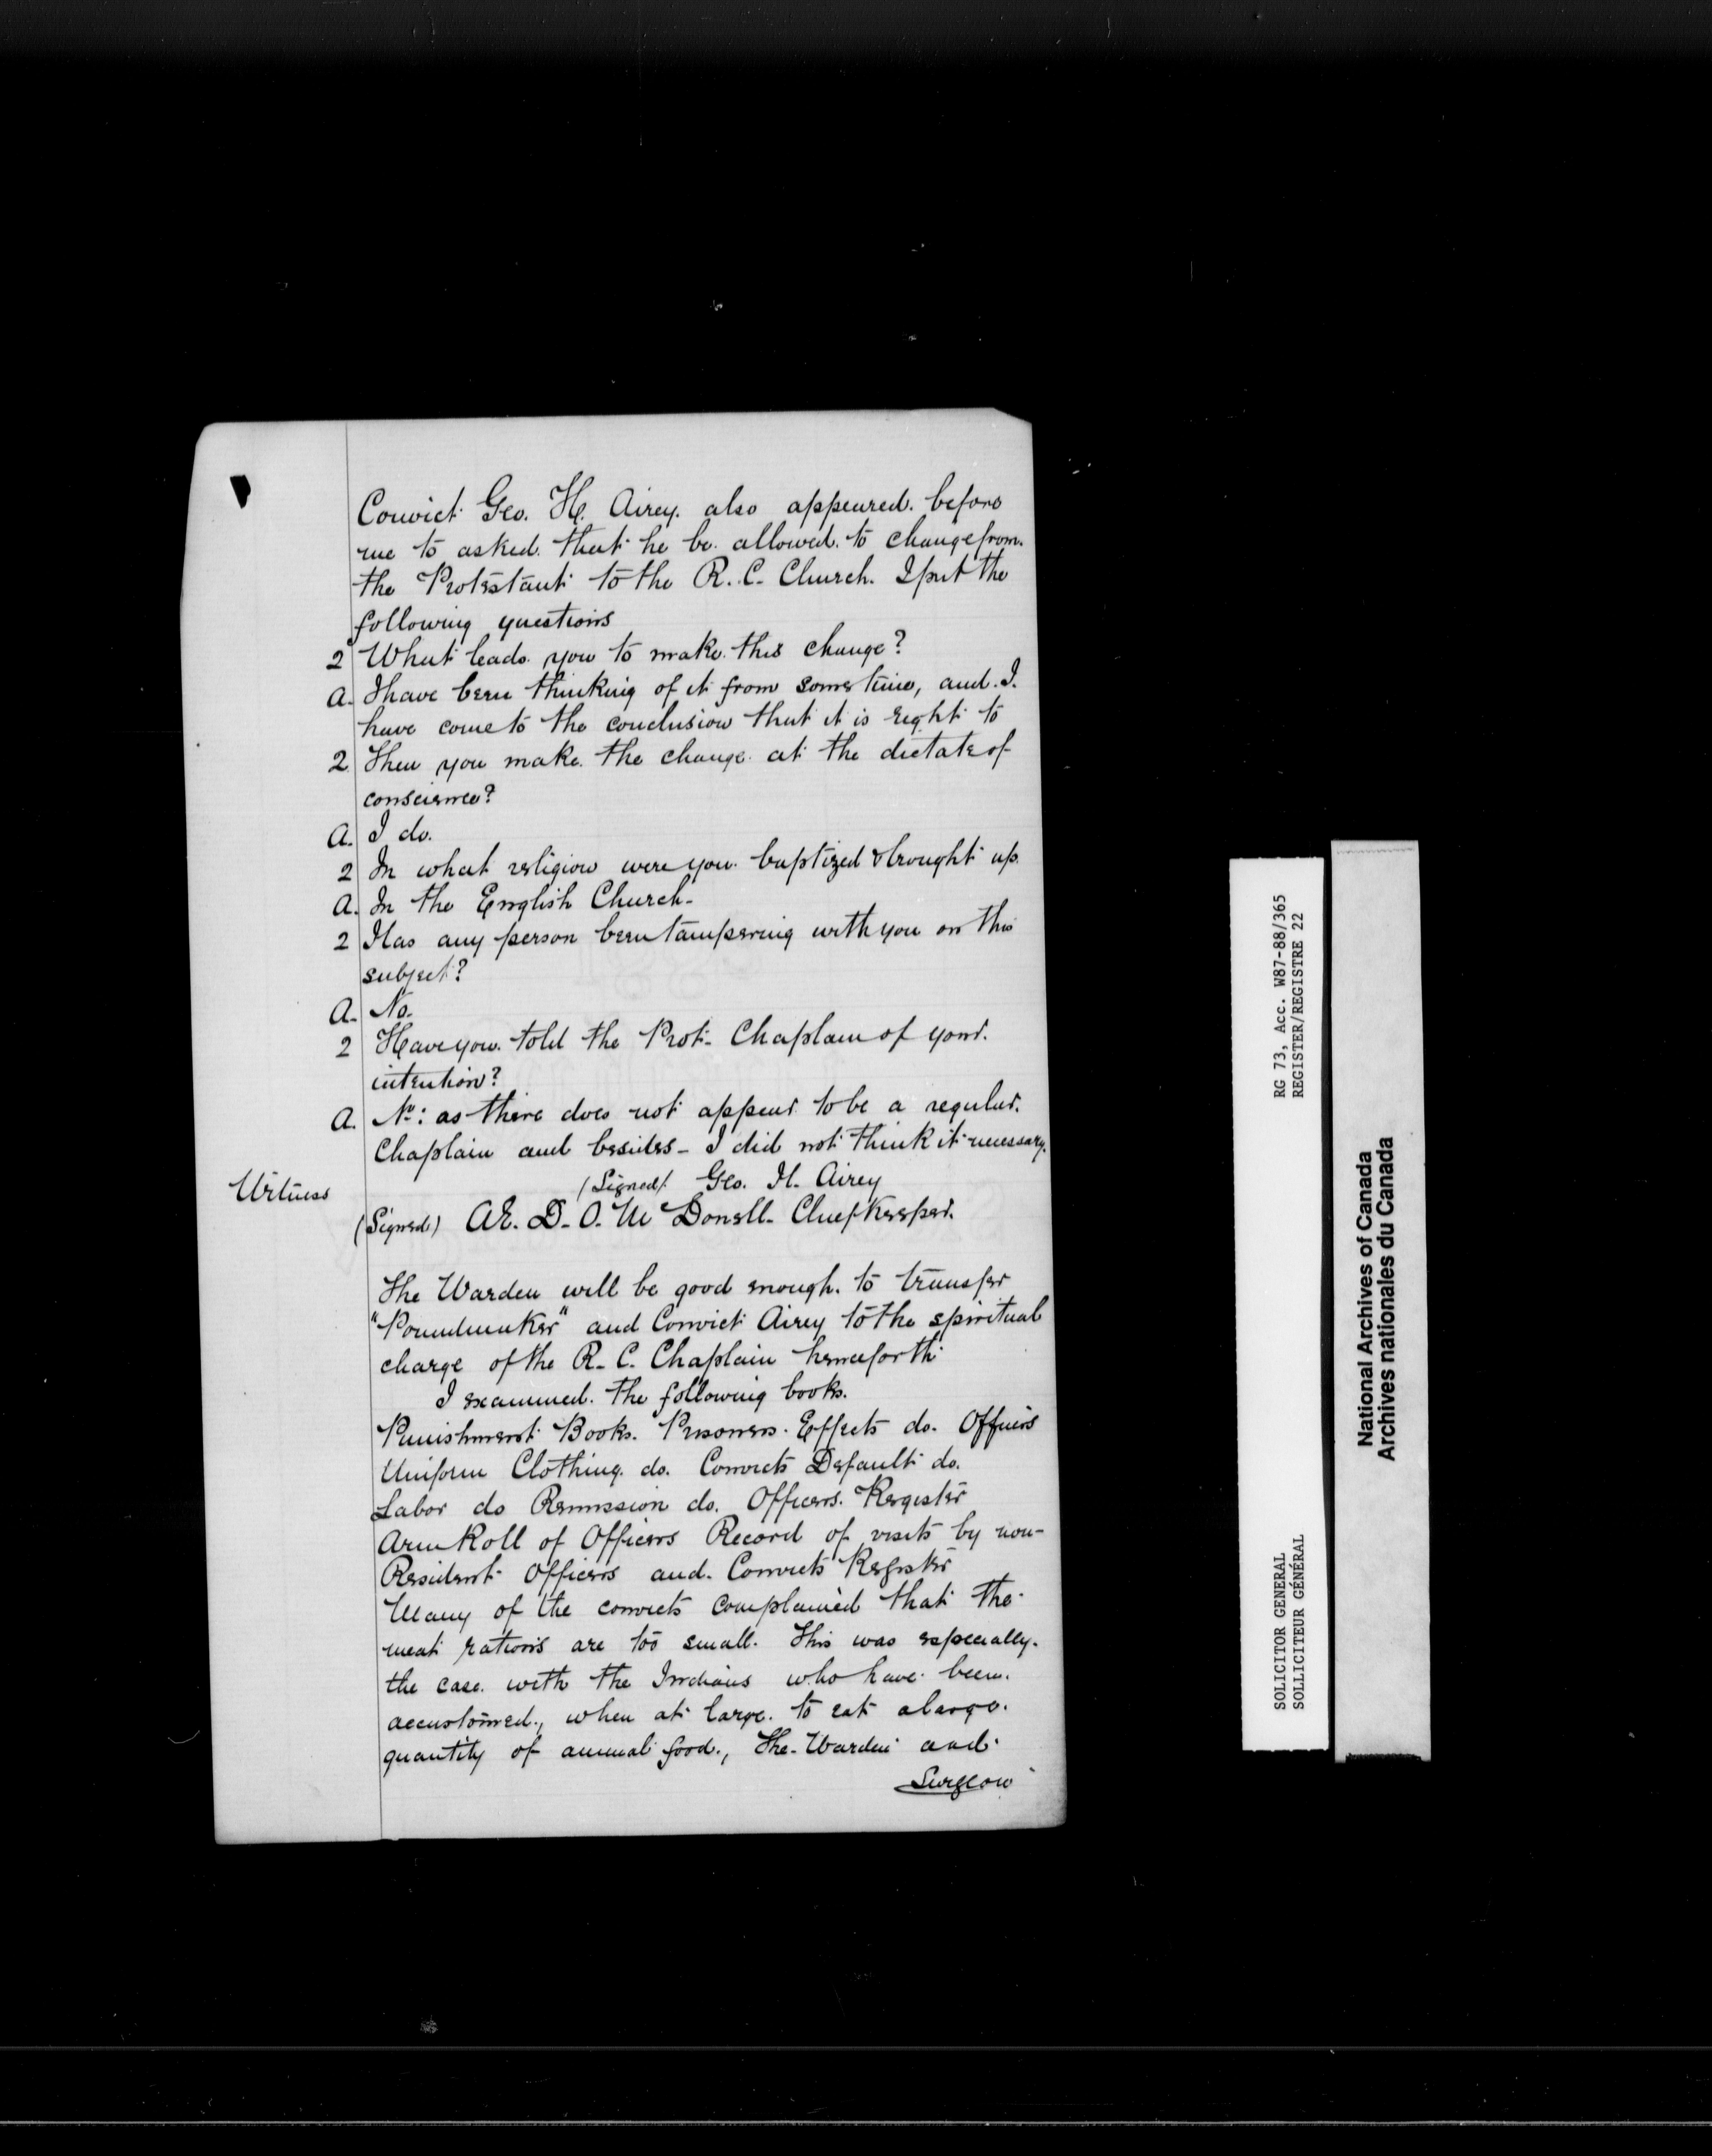 Convict Geo. H. Airey. also appeared. before
me to asked. that he be. allowed. to change from.
the Protestant to the R. C. Church. I put the
following questions
2 What leads you to make this change?
A. I have been thinking of it from some time, and. I.
have come to the conclusion that it is right to
2 Then you make the change at the dictate of
conscience?
A. I do.
2 In what religion were you baptized & brought up.
A. In the English Church-
2 Has any person been tampering with you on this
subject?
A- No.
2 Have you told the Prot- Chaplain of your.
intention?
A. No: as there does not appear to be a regular.
Chaplain and besides- I did not think it necessary.
(Signed) Geo. H. Airey
Witness
(Signed) AE. D. O. McDonell- Chief Keeper.
The Warden will be good enough. to transfer
"Poundmaker" and Convict Airey to the spiritual
charge of the R- C. Chaplain henceforth
I examined. the following books.
Punishment Books. Prisoners. Effects do. Officers
Uniform Clothing. do. Convicts Default do.
Labor do Remission do. Officers. Register
Arm Roll of Officers Record of visits by non-
Resident Officers and. Convicts Register
Many of the convicts complained that the
meat rations are too small. This was especially.
the case. with the Indians who have been.
accustomed., when at large. to eat a large.
quantity of animal food., The- Warden and
Surgeon
SOLICITOR GENERAL
SOLLICITEUR GÉNÉRAL
RG 73, Acc. W87-88/365
REGISTER/REGISTRE 22
National Archives of Canada
Archives nationales du Canada